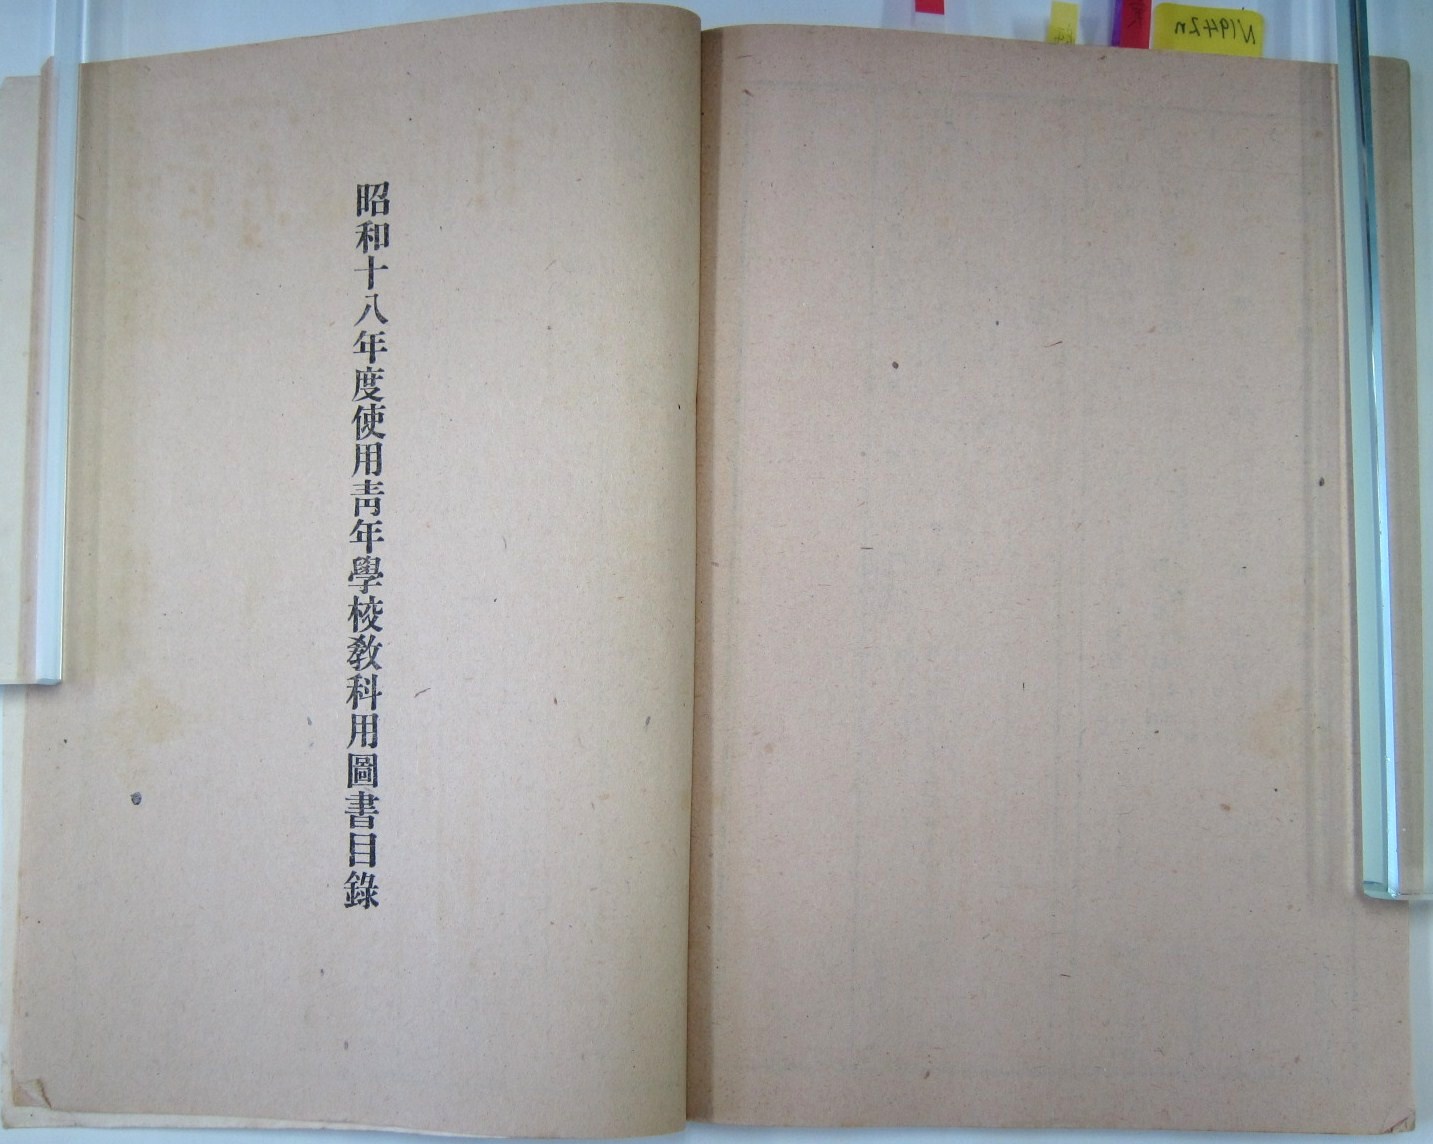 昭和十八年度使用靑年學校敎科用圖書目錄
N1942n